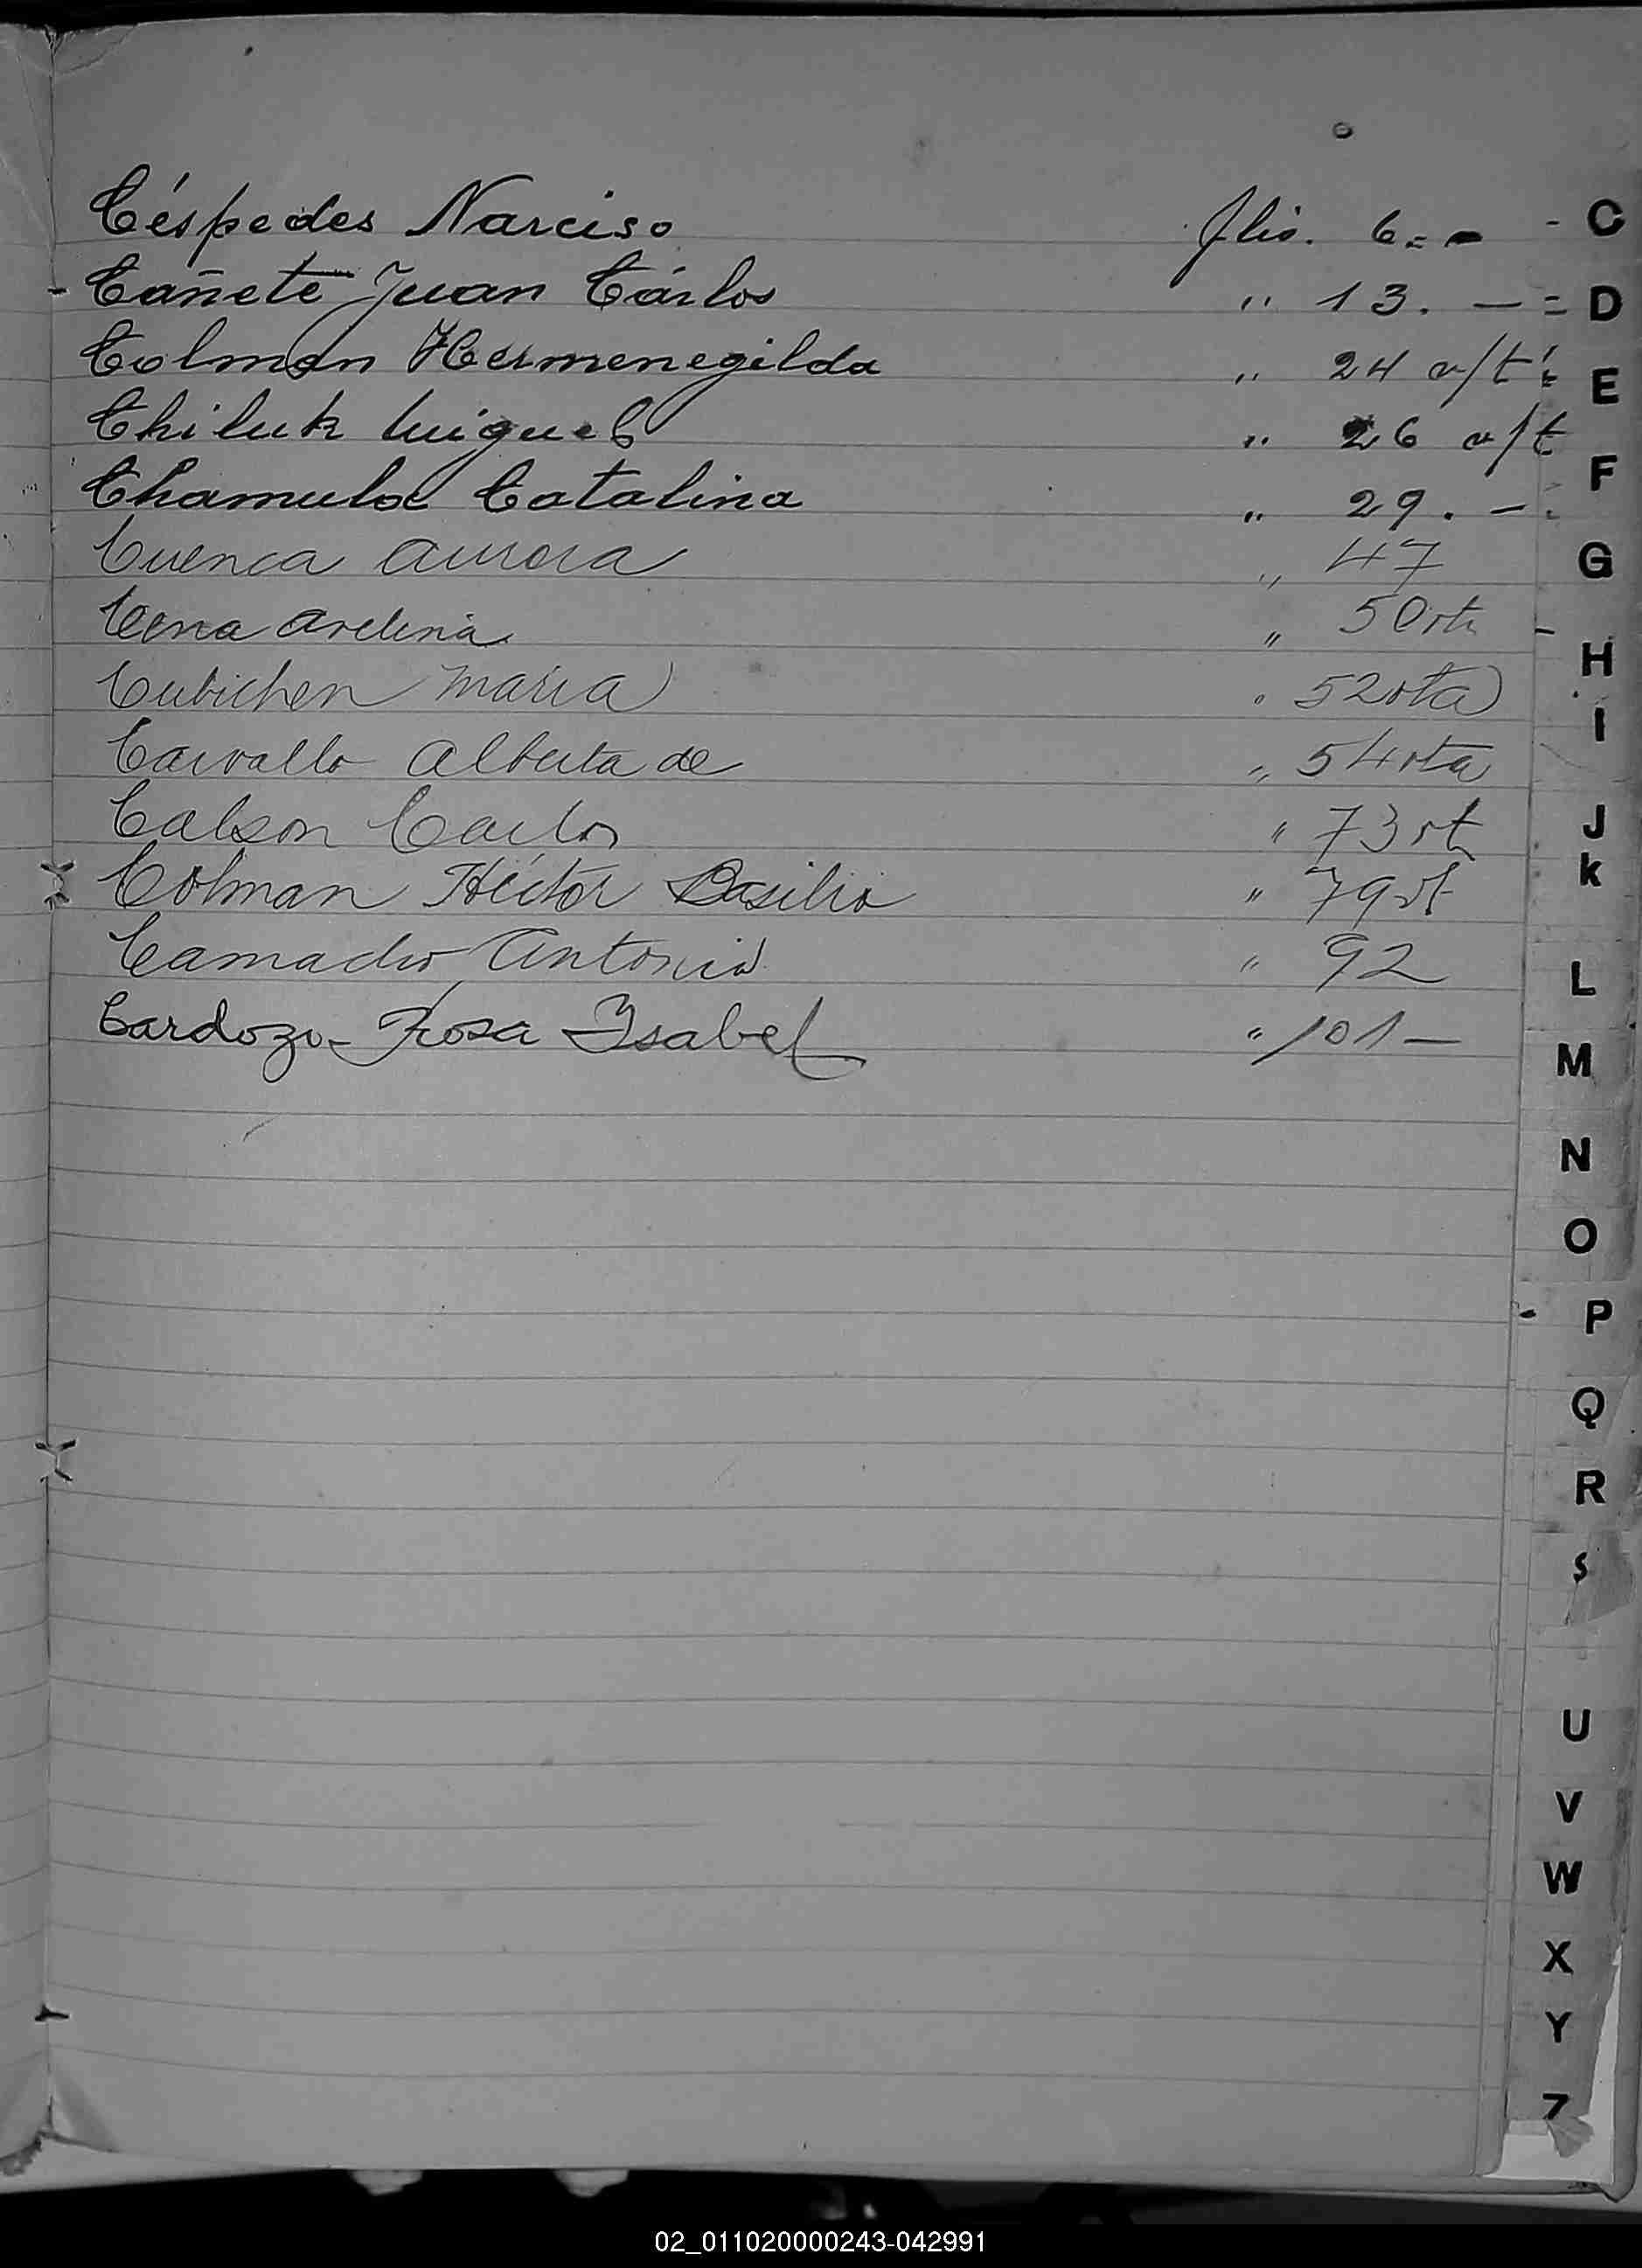 Céspedes Narciso flio. 6.=- C
Cañete Juan Cárlos " 13. - = D
Colman Hermenegilda " 24 v/t E
Chiluk Miguel " 26 v/t
Chamula Catalina " 29. - F
Cuenca Aurora " 47 G
Cena Avelina " 50 vta H
Cubichen Maria " 52 vta I
Carvallo Alberta de " 54 vta
Calson Carlos " 73 vt J
Colman Héctor Basilio " 79 vt k
Camacho Antonio " 92 L
Cardozo- Rosa Isabel " 101 - M
N
O
P
Q
R
S
U
V
W
X
Y
Z
02_011020000243-042991